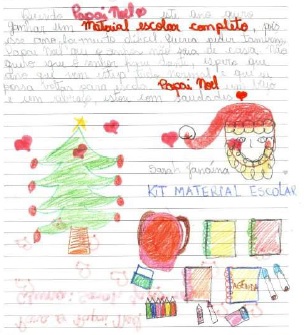 querido Papai Noel este ano quero
ganhar um Material escolar completo, pois
esse ano foi muito difícil queria pedir também
que não saia de casa não
quero que o senhor fique doente espero que
ano que vem esteja tudo e que eu
possa voltar para Papai Noel um beijo
e um abraço estou com saudades
Sarah Janaína
KIT MATERIAL ESCOLAR
AGENDA
Para: Papai Noel